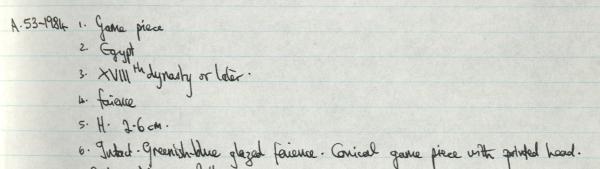 A.53-1984 1. Game piece
2. Egypt
3. XVIIIth dynasty or later.
4. faience
5. H. 2.6 cm.
6. Intact. Greenish-blue glazed faience. Conical game piece with head.